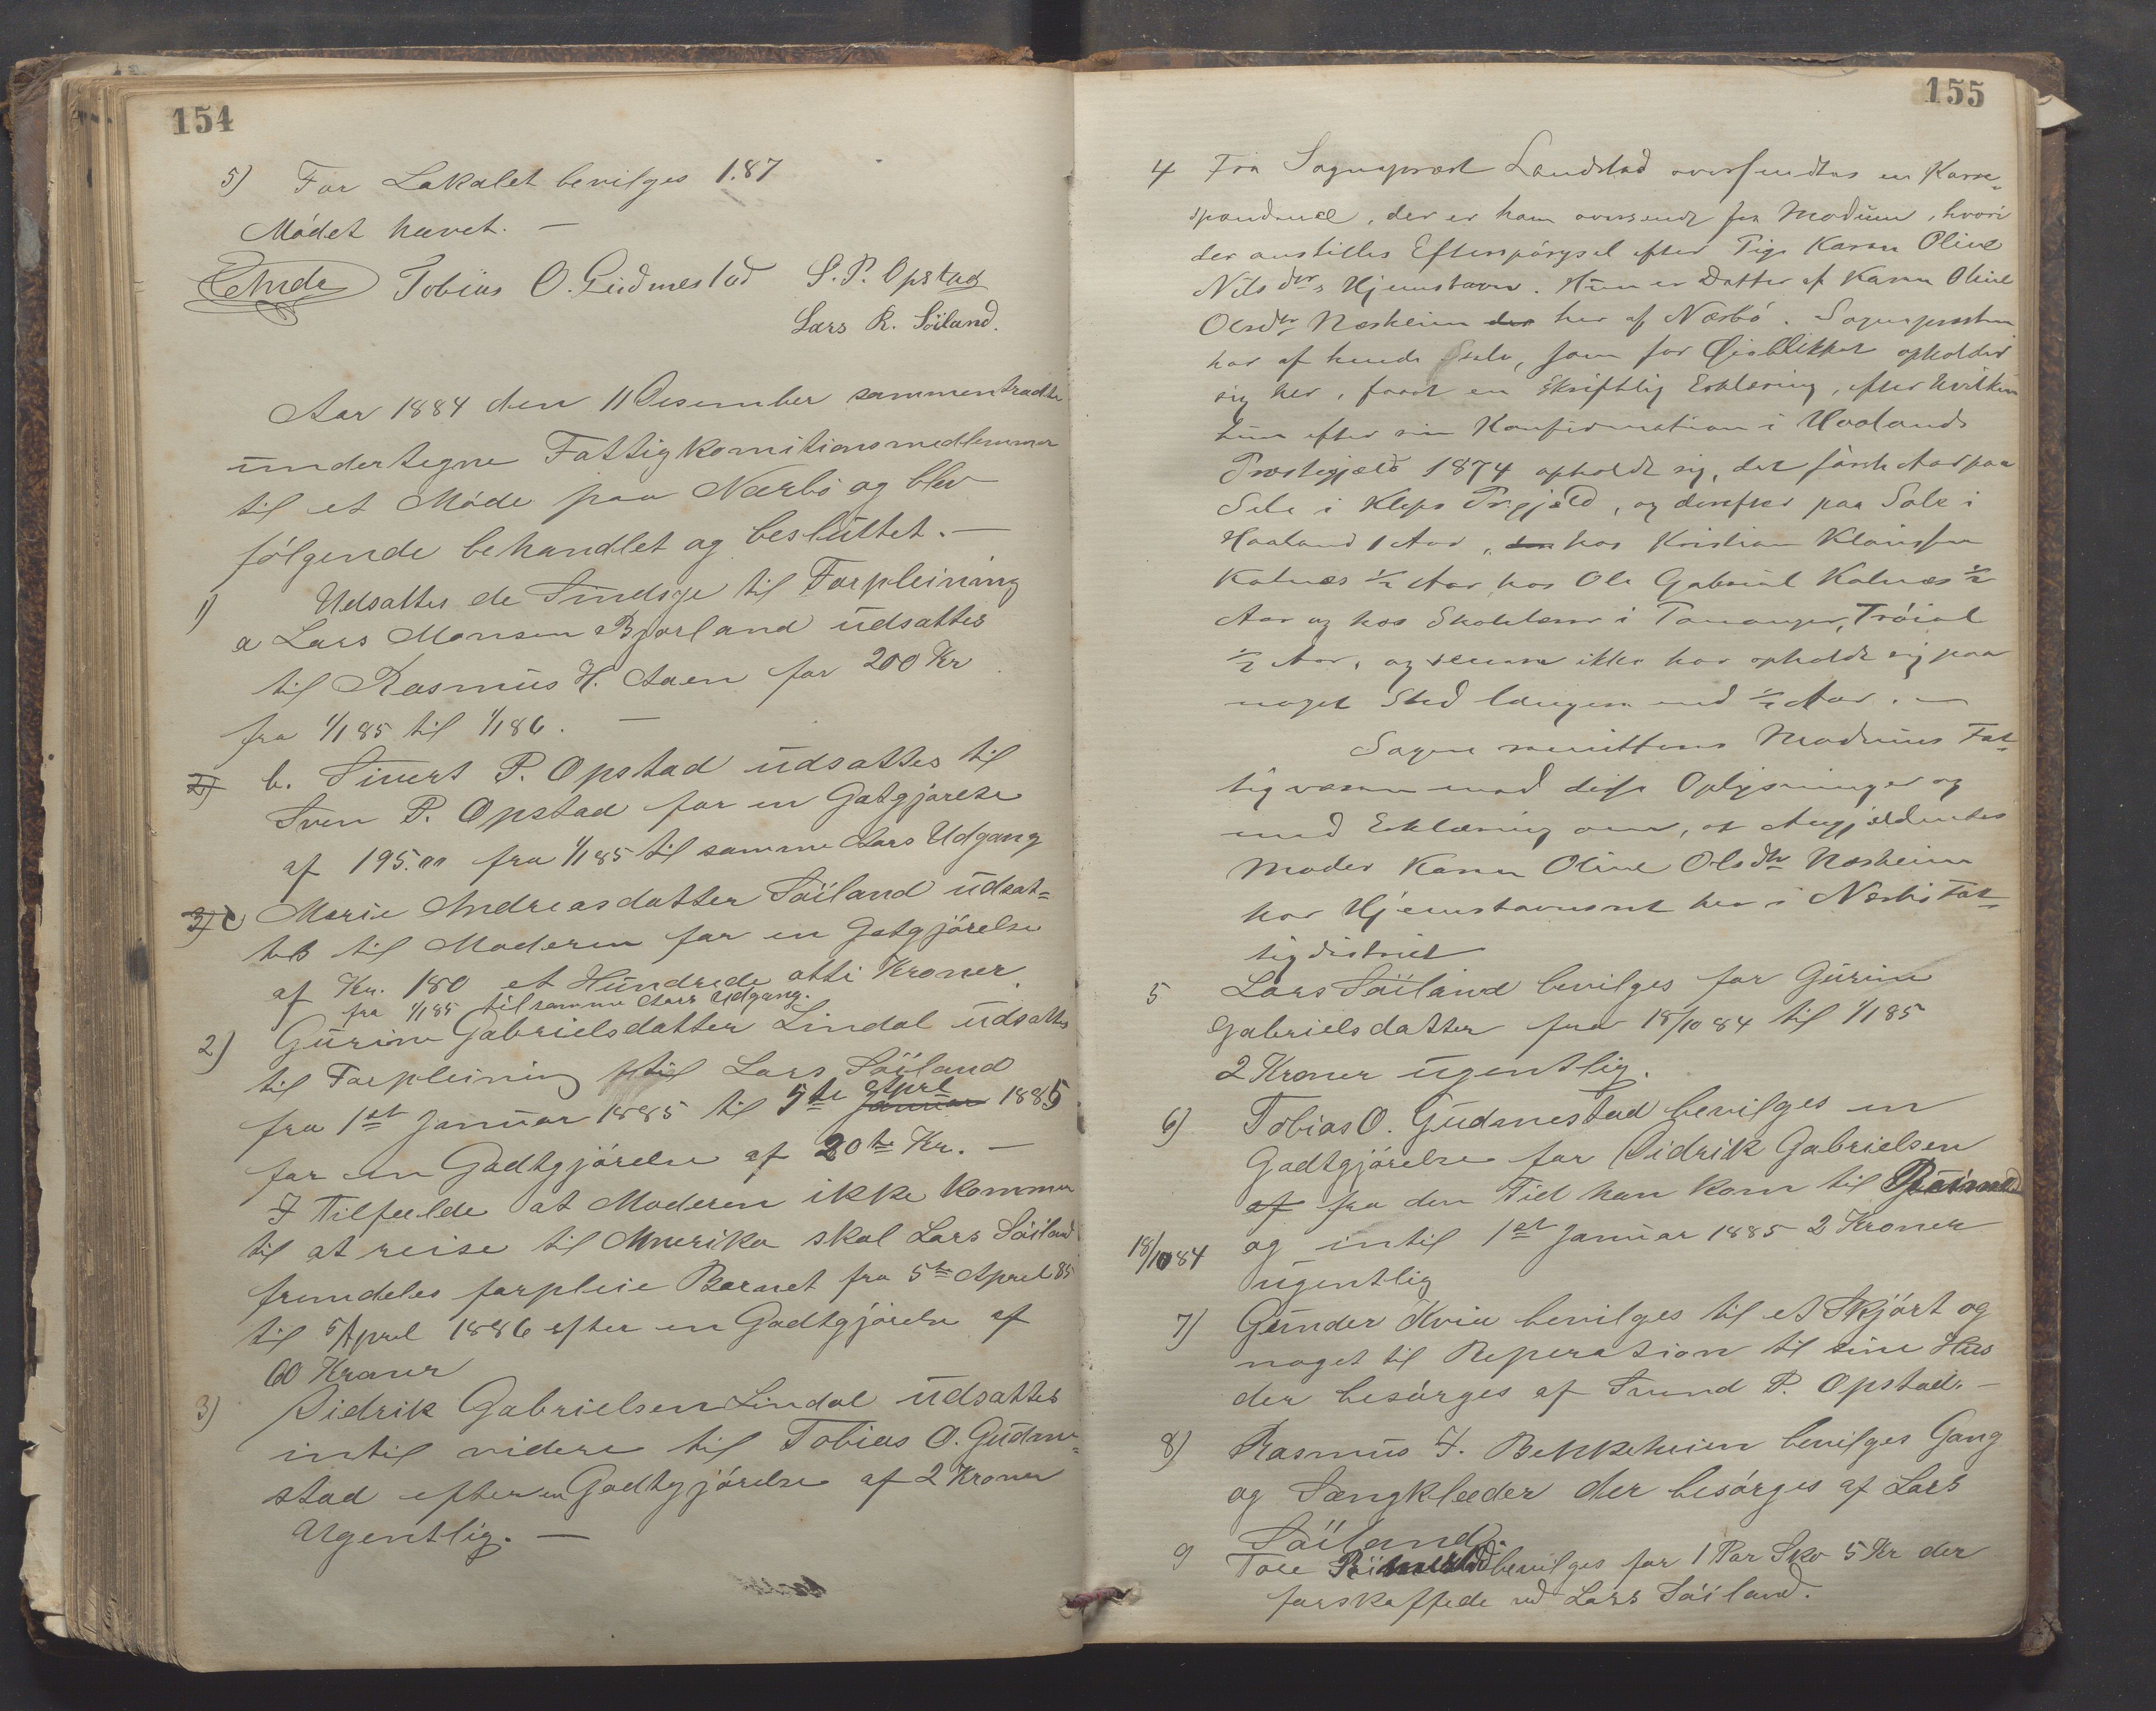 154
5) For Lokalet bevilges 1.87
Mödet hævet. —
Tobias O. Gudmestad S. P. Opstad
Lars R. Söiland.
Aar 1884 den 11 Desember sammentradte
undertegne Fattigkomitionsmedlemmer
til et Möde paa Nærbö og blev
fölgende behandlet og besluttet. —
1) Udsattes de Sindsge til Forpleining
a Lars Monsen Bjorland udsattes
til Rasmus H. Aaen for 200 Kr
fra 1/1 85 til 1/1 86. —
2) b. Sivert P. Opstad udsattes til
Sven P. Opstad for en Gotgjörelse
af 195.00 fra 1/1 85 til samme Aars Udgang
3) c Marie Andreasdatter Söiland udsat=
tes til Moderen for en Gotgjörelse
af Kr. 180 et Hundrede otti Kroner.
fra 1/1 85 til samme Aars Udgang.
2) Gurine Gabrielsdatter Lindal udsattes
til Forpleining til Lars Söiland
fra 1st Januar 1885 til 5te Aprl Januar 1885
for en Godtgjörelse af 20te Kr. —
I Tilfælde at Moderen ikke kommer
til at reise til Amerika skal Lars Söiland
fremdeles forpleie Barnet fra 5te April 85
til 5/April 1886 efter en Godtgjörelse af
60 Kroner
3) Didrik Gabrielsen Lindal udsattes
intil videre til Tobias O. Gudme=
stad efter en Godtgjörelse af 2 Kroner
Ugentlig. —
155
4 Fra Sogneprest Landstad oversendtes en Korre=
spondance, der er ham oversendt fra Modum, hvori
der anstilles Efterspörgsel efter Pige Karen Oline
Nilsdtrs Hjemstavn. Hun er Datter af Karen Oline
Olsdtr Næsheim der her af Nærbö. Sognepresten
har af hende Selv, som for Øieblikket opholder
sig her, faaet en Skriftlig Erklæring, efter hvilken
hun efter sin Konfirmation i Haalands
Præstegjæld 1874 opholdt sig, det förste Aar paa
Sele i Kleps Prgjæld, og derefter paa Sole i
Haaland 1 Aar, hos Kristian Klausen
Kolnæs 1/2 Aar, hos Ole Gabriel Kolnæs 1/2
Aar og hos Skolelærer i Tananger, Tröial
1/2 Aar, og senere ikke har opholdt sig paa
noget Sted længere end 1/2 Aar. —
Sagen remitteres Modums Fat=
tigvæsen med disse Oplysninger og
med Erklæring om, at Angjældendes
Moder Karen Oline Olsdtr Næsheim
har Hjemstavnsret her i Nærbö Fat=
tigdistrict
5 Lars Söiland bevilges for Gurine
Gabrielsdatter fra 18/10 84 til 1/1 85
2 Kroner ugentlig.
6) Tobias O. Gudmestad bevilges en
Godtgjörelse for Didrik Gabrielsen
af fra den Tid han kom til
18/10 84 og intil 1st Januar 1885 2 Kroner
ugentlig
7) Gunder Kvia bevilges til et Skjört og
noget til Reperation til sine Hus
der besörges af Svend P. Opstad. —
8) Rasmus I. Bekkeheien bevilges Gang
og Sængklæder der besörges af Lars
Söiland.
9 Tore bevilges for 1 Par Sko 5 Kr der
forskaffede ved Lars Söiland.